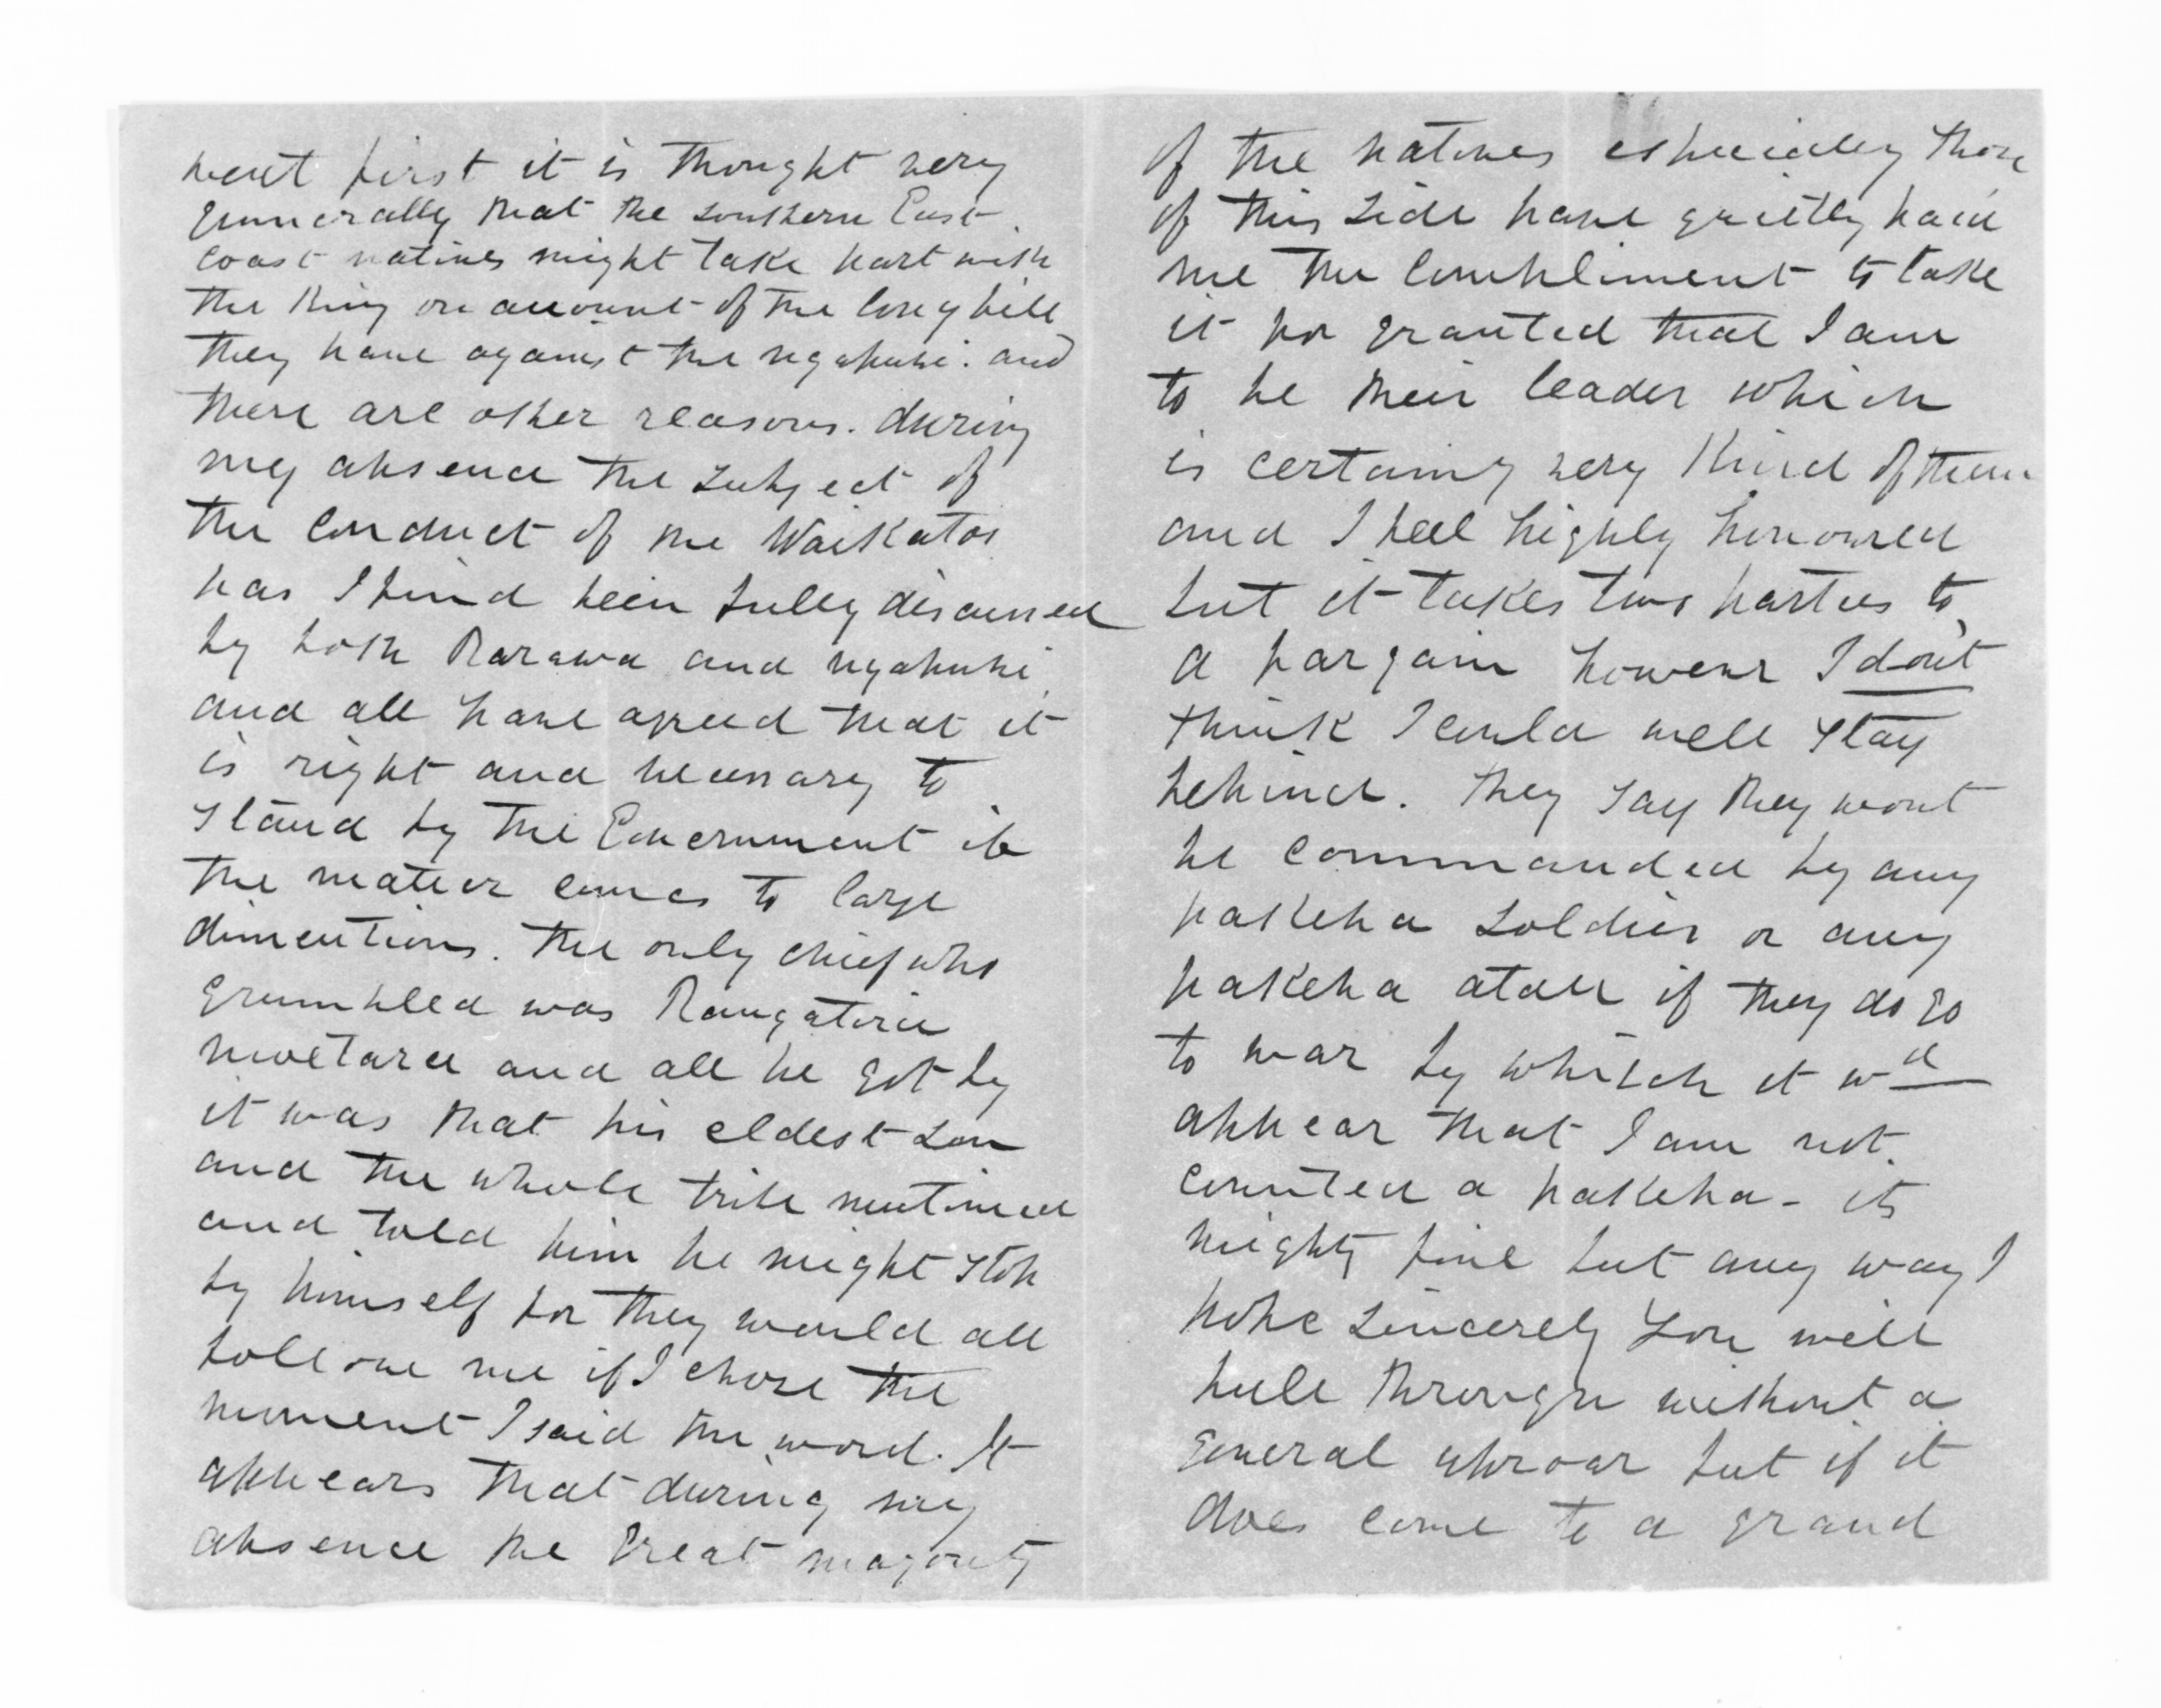 went first it is thought very
gennerally that the southern East
Coast natives might take part with
the King on account of the long bill
they have against the ngapuhi. and
there are other reasons. during
my absence the subject of
the conduct of the Waikatos
has I find been fully discussed
by both Rarawa and ngapuhi
and all have agreed that it
is right and necessary to
stand by the Government if
the matter comes to large
dimentions. the only chief who
grumbled was Rangatira
moetara and all he got by
it was that his eldest son
and the whole tribe mutinied
and told him he might stop
by himself for they would all
follow me if I chose the
moment I said the word. It
appears that during my
absence the great majority
of the natives especialley those
of this side have quietly paid
me the compliment to take
it for granted that I am
to be their leader which
is certainy very kind of them
and I feel highly honoured
but it takes two parties to
a bargain however I dont
think I could well stay
behind. they say they wont
be commanded by any
pakeha soldier or any
pakeha atall if they do go
to war by whitch it wd
appear that I am not
counted a pakeha - its
mighty fine but any way I
hope sincerely you will
pull through without a
general uproar but if it
does come to a grand